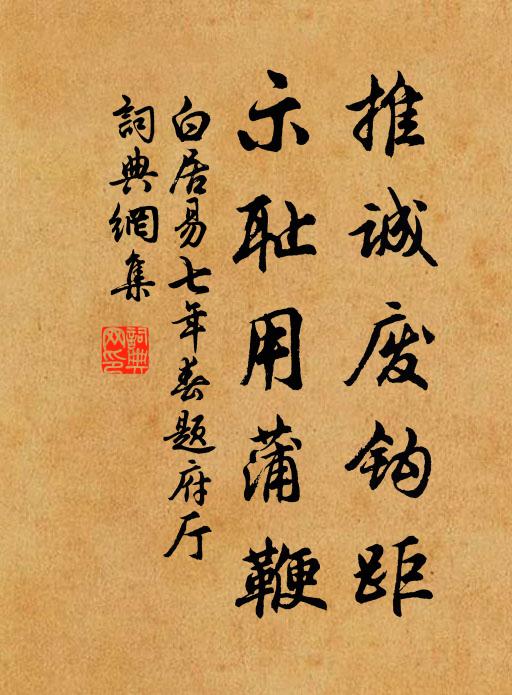 推诚废钩距
示耻用蒲鞭
白居易七年春题府厅
詞典網集
詞典網印